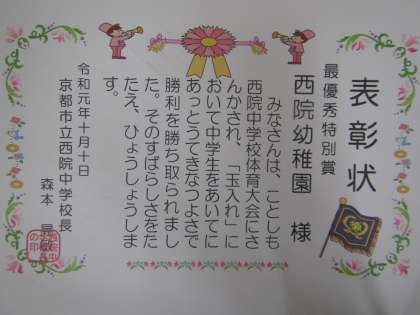 表彰状
最優秀特別賞
西院幼稚園 様
みなさんは、ことしも
西院中学校体育大会にさ
んかされ、「玉入れ」に
おいて中学生をあいてに
あっとうてきなつよさで
勝利を勝ち取られまし
た。そのすばらしさをた
たえ、ひょうしょうしま
す。
令和元年十月十日
京都市立西院中学校長
森本